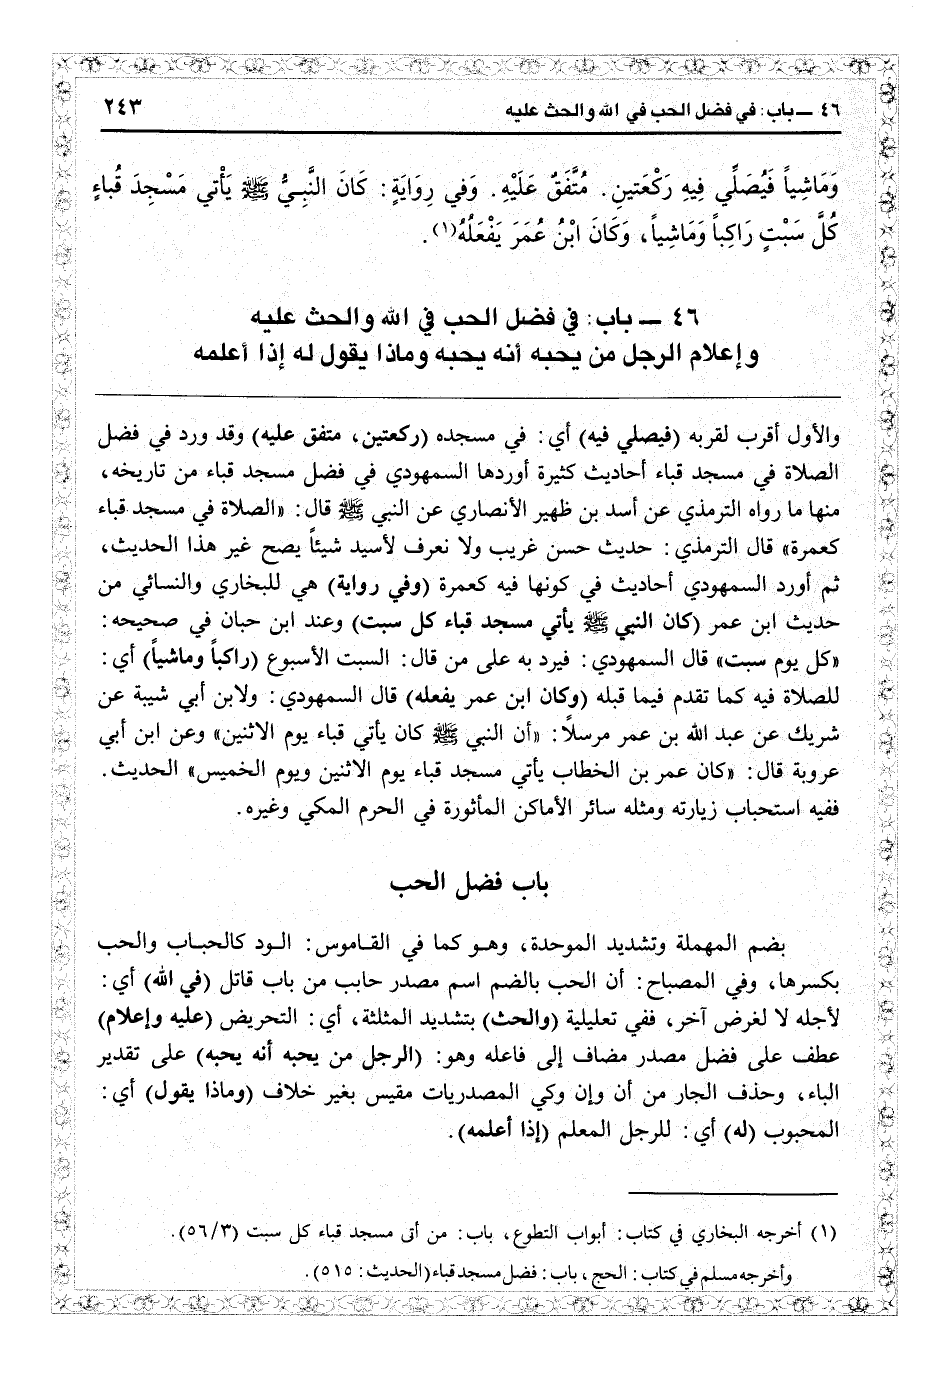 ٤٦ ـ باب: في فضل الحب في الله والحث عليه ٢٤٣
وَمَاشِياً فَيُصَلِّي فِيهِ رَكْعَتينِ. مُتَّفَقٌ عَلَيْهِ. وَفي رِوَايَةٍ: كَانَ النَّبِيُّ ﷺ يَأْتي مَسْجِدَ قُباءٍ
كُلَّ سَبْتٍ رَاكِباً وَمَاشِياً، وَكَانَ ابْنُ عُمَرَ يَفْعَلُهُ(١).
٤٦ ـ باب: في فضل الحب في الله والحث عليه
وإعلام الرجل من يحبه أنه يحبه وماذا يقول له إذا أعلمه
والأول أقرب لقربه (فيصلي فيه) أي: في مسجده (ركعتين، متفق عليه) وقد ورد في فضل
الصلاة في مسجد قباء أحاديث كثيرة أوردها السمهودي في فضل مسجد قباء من تاريخه،
منها ما رواه الترمذي عن أسد بن ظهير الأنصاري عن النبي ﷺ قال: «الصلاة في مسجد قباء
كعمرة» قال الترمذي: حديث حسن غريب ولا نعرف لأسيد شيئاً يصح غير هذا الحديث،
ثم أورد السمهودي أحاديث في كونها فيه كعمرة (وفي رواية) هي للبخاري والنسائي من
حديث ابن عمر (كان النبي ﷺ يأتي مسجد قباء كل سبت) وعند ابن حبان في صحيحه:
«كل يوم سبت» قال السمهودي: فيرد به على من قال: السبت الأسبوع (راكباً وماشياً) أي:
للصلاة فيه كما تقدم فيما قبله (وكان ابن عمر يفعله) قال السمهودي: ولابن أبي شيبة عن
شريك عن عبد الله بن عمر مرسلاً: «أن النبي ﷺ كان يأتي قباء يوم الاثنين» وعن ابن أبي
عروبة قال: «كان عمر بن الخطاب يأتي مسجد قباء يوم الاثنين ويوم الخميس» الحديث.
ففيه استحباب زيارته ومثله سائر الأماكن المأثورة في الحرم المكي وغيره.
باب فضل الحب
بضم المهملة وتشديد الموحدة، وهو كما في القاموس: الود كالحباب والحب
بكسرها، وفي المصباح: أن الحب بالضم اسم مصدر حابب من باب قاتل (في الله) أي:
لأجله لا لغرض آخر، ففي تعليلية (والحث) بتشديد المثلثة، أي: التحريض (عليه وإعلام)
عطف على فضل مصدر مضاف إلى فاعله وهو: (الرجل من يحبه أنه يحبه) على تقدير
الباء، وحذف الجار من أن وإن وكي المصدريات مقيس بغير خلاف (وماذا يقول) أي:
المحبوب (له) أي: للرجل المعلم (إذا أعلمه).
(١) أخرجه البخاري في كتاب: أبواب التطوع، باب: من أتى مسجد قباء كل سبت (٥٦/٣).
وأخرجه مسلم في كتاب: الحج، باب: فضل مسجد قباء (الحديث: ٥١٥).